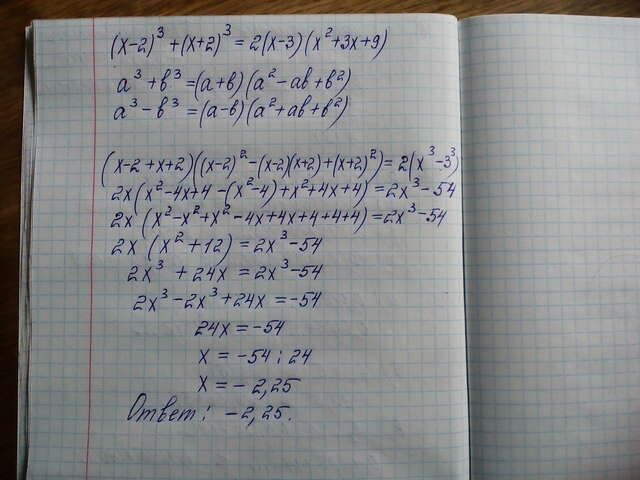 (x-2)³+(x+2)³=2(x-3)(x²+3x+9)
a³+в³=(a+в)(a²-aв+в²)
a³-в³=(a-в)(a²+aв+в²)
(x-2+x+2)((x-2)²-(x-2)(x+2)+(x+2)²)=2(x³-3³)
2x(x²-4x+4-(x²-4)+x²+4x+4)=2x³-54
2x(x²-x²+x²-4x+4x+4+4+4)=2x³-54
2x(x²+12)=2x³-54
2x³+24x=2x³-54
2x³-2x³+24x=-54
24x=-54
x=-54:24
x=-2,25
Ответ: -2,25.